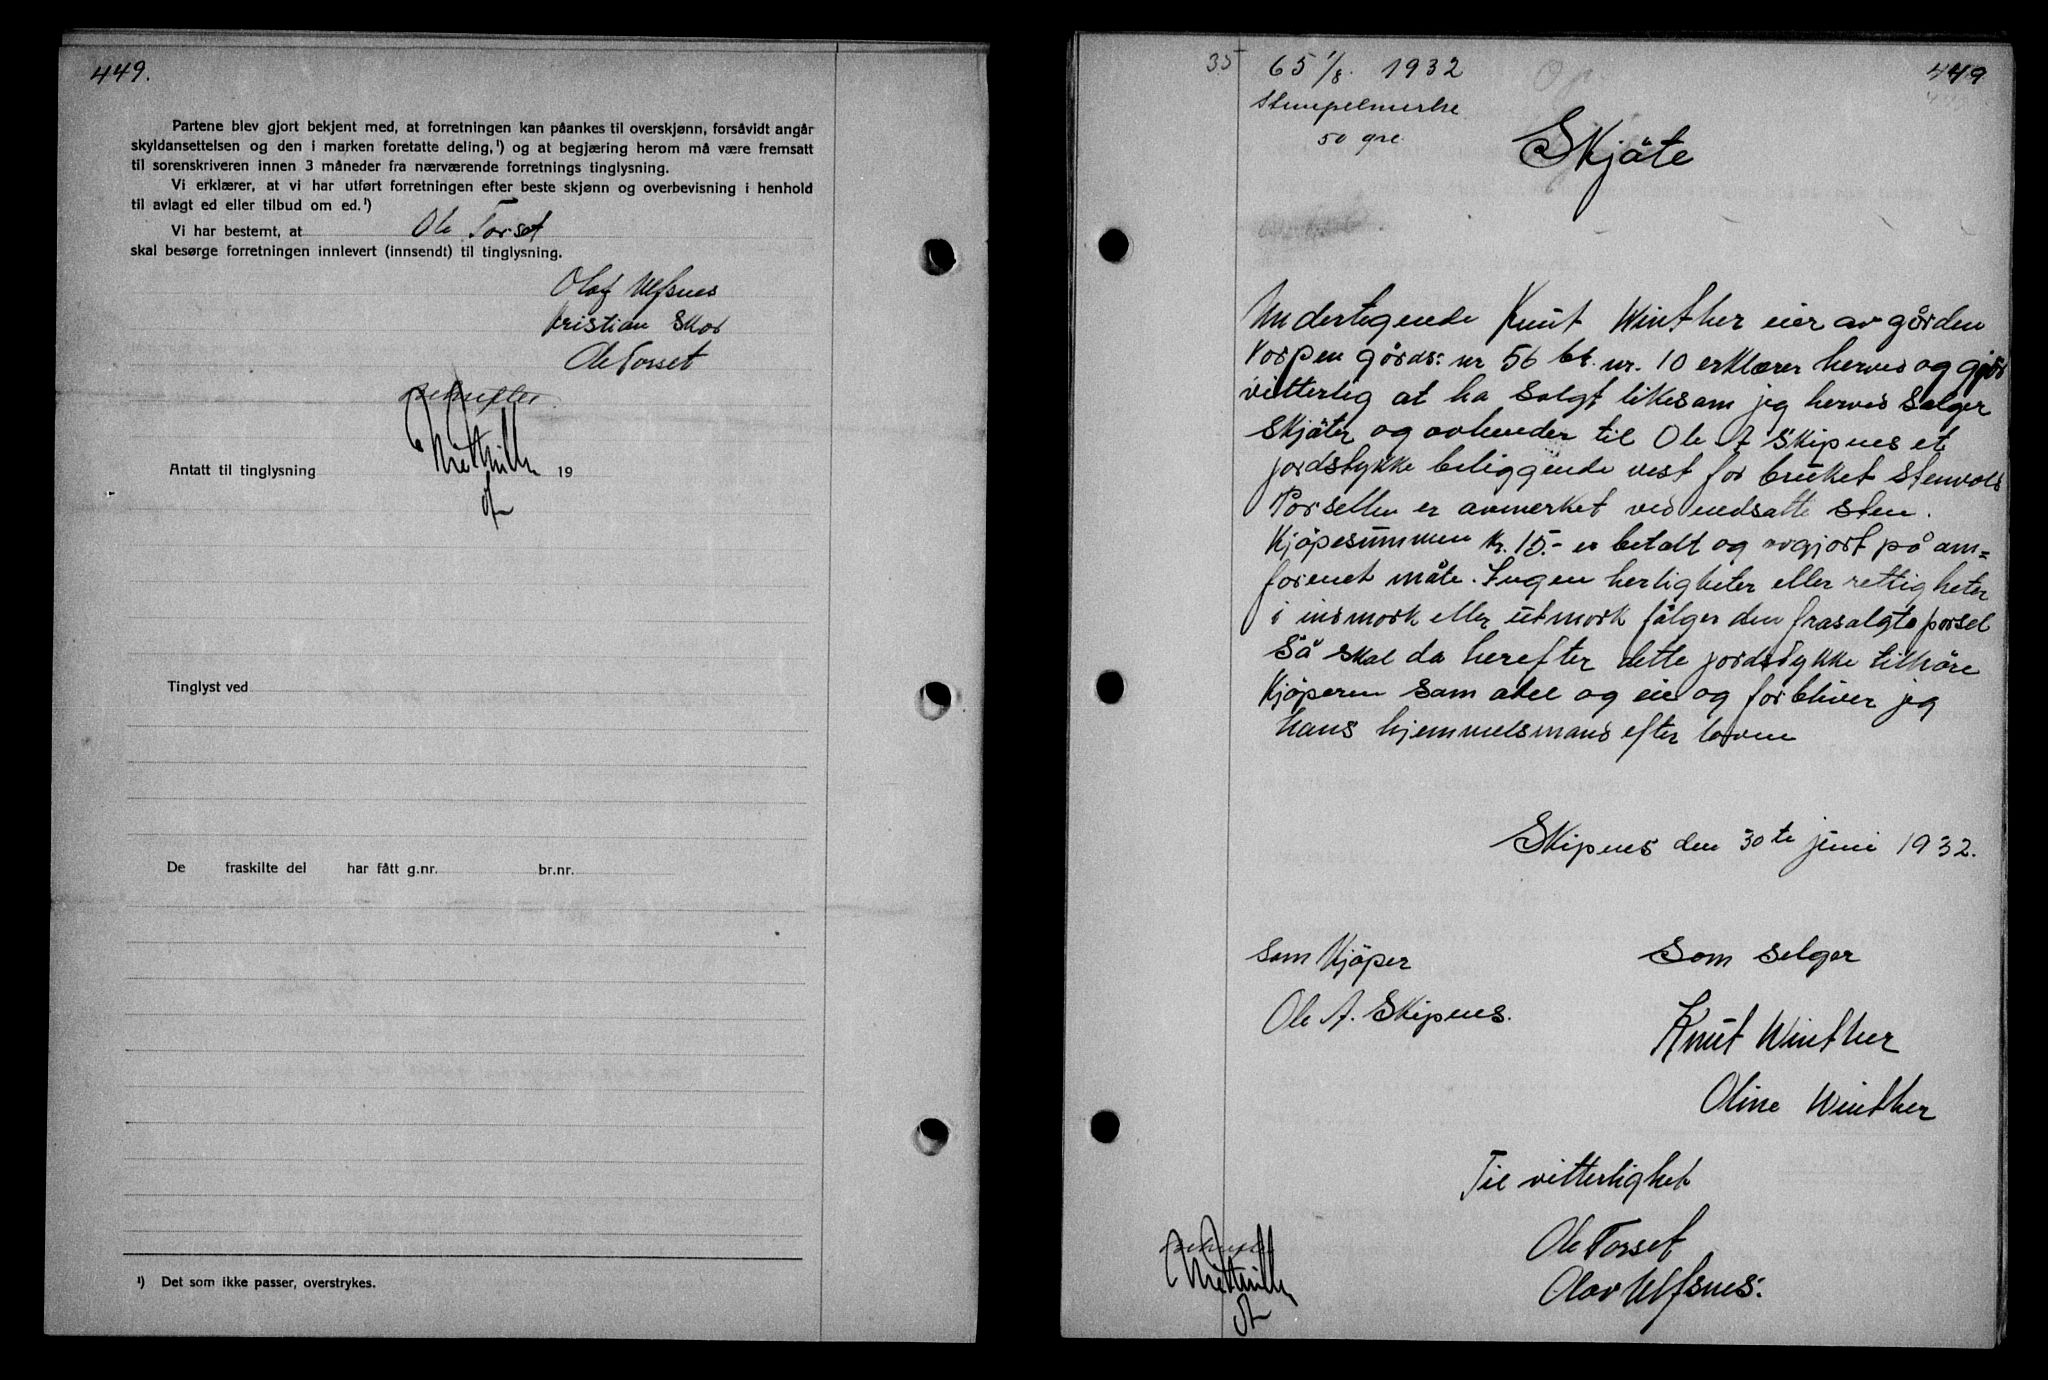 449.
Partene blev gjort bekjent med, at forretningen kan påankes til overskjønn, forsåvidt angår
skyldansettelsen og den i marken foretatte deling,¹) og at begjæring herom må være fremsatt
til sorenskriveren innen 3 måneder fra nærværende forretnings tinglysning.
Vi erklærer, at vi har utført forretningen efter beste skjønn og overbevisning i henhold
til avlagt ed eller tilbud om ed.¹)
Vi har bestemt, at Ole Torset
skal besørge forretningen innlevert (innsendt) til tinglysning.
Olaf Ulfsnes
Kristian Skor
Ole Torset
Antatt til tinglysning 19
Tinglyst ved
De fraskilte del har fått g.nr. br.nr.
¹) Det som ikke passer, overstrykes.
35 65 1/8. 1932 449
Stempelmerke
50 øre
Skjöte
Undertegende Knut Winther eier av gården
Korpen gårds: nr 56 br. nr. 10 erklærer herved og gjör
vitterlig at ha solgt likesom jeg herved selger
skjöter og avhender til Ole A Skipnes et
jordstykke beliggende vest for bruket Stenvold
Parsellen er avmerket ved nedsatte sten.
Kjöpesummen kr. 15.- er betalt og avgjort på om=
forenet måte. Ingen herligheter eller rettigheter
i indmark eller utmark fölger den frasalgte parsel
Så skal da herefter dette jordstykke tilhöre
Kjöperen som odel og eie og forbliver jeg
hans hjemmelsmand efter loven
Skipnes den 30te juni 1932.
Som Kjöper Som selger
Ole A. Skipnes. Knut Winther
Oline Winther
Til vitterlighet
Ole Torset
Olav Ulfsnes.